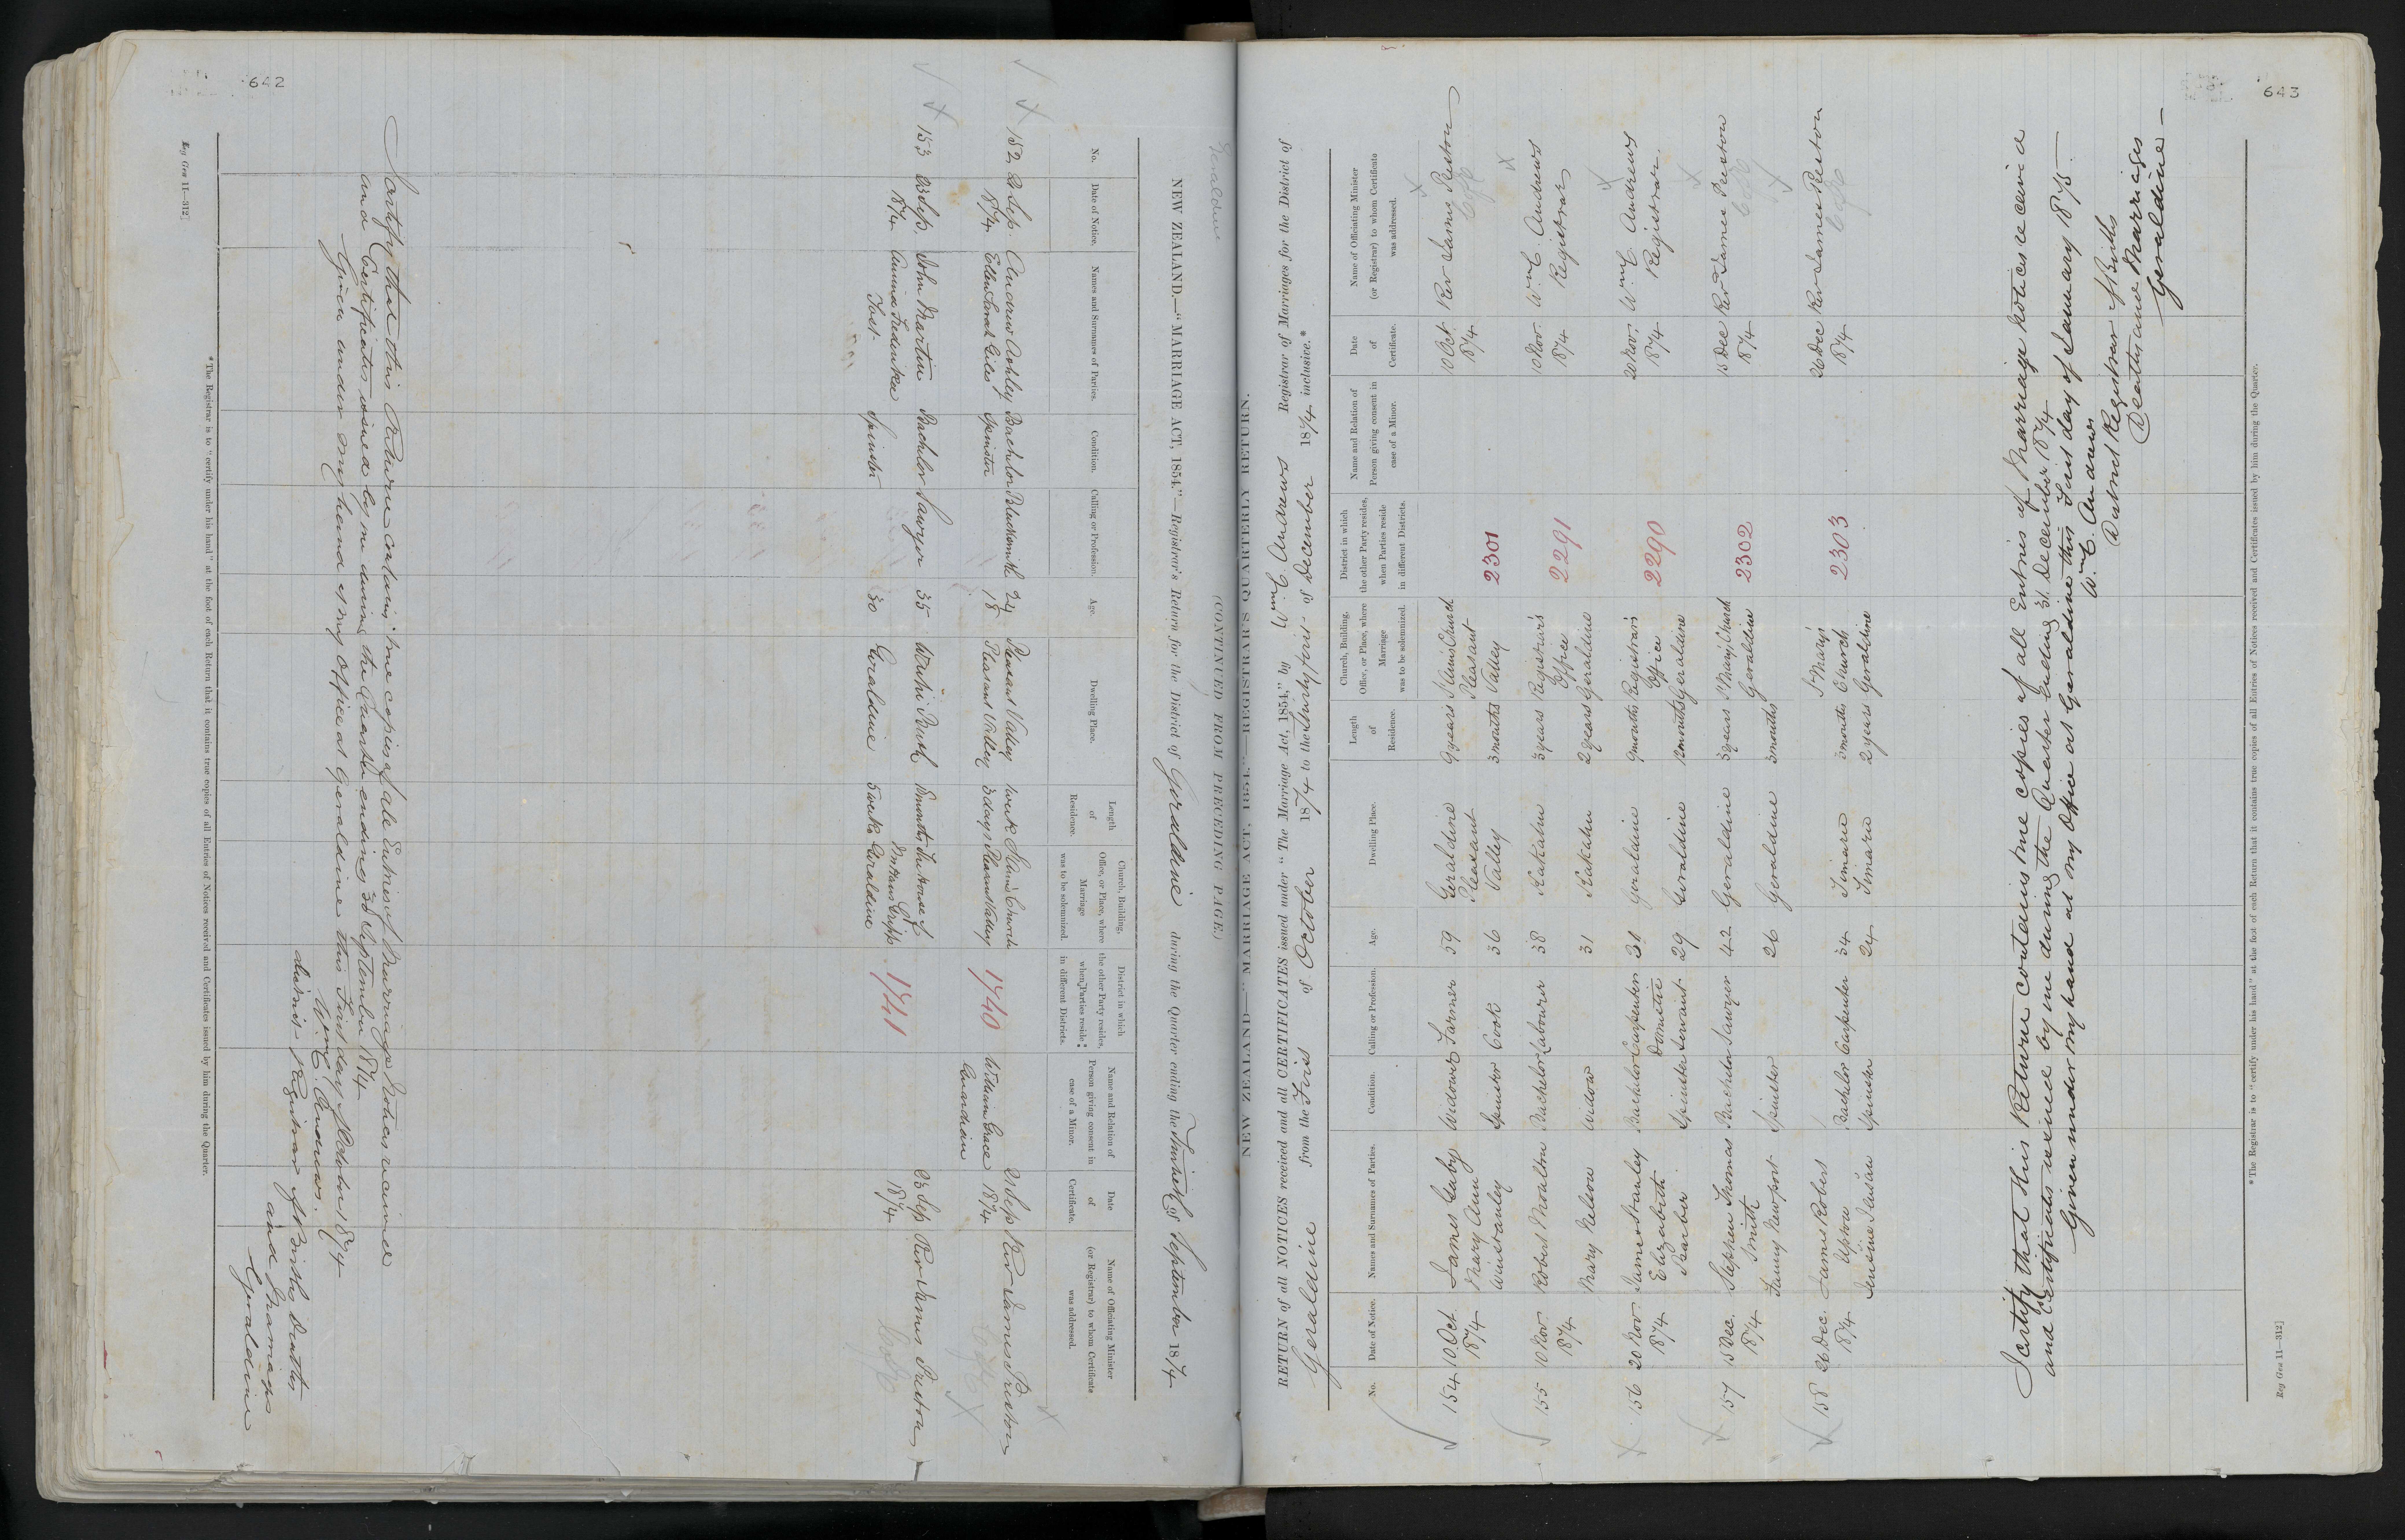 642
Geraldine
(CONTINUED FROM PRECEDING PAGE.)
NEW ZEALAND.—"MARRIAGE ACT, 1854."—Registrar's Return for the District of Geraldine during the Quarter ending the Thirtieth of September 1874
No.
Date of Notice.
Names and Surnames of Parties.
Condition.
Calling or Profession.
Age.
Dwelling Place.
Length of Residence.
Church, Building, Office, or Place, where Marriage was to be solemnized.
District in which the other Party resides, when Parties reside in different Districts.
Name and Relation of Person giving consent in case of a Minor.
Date of Certificate.
Name of Officiating Minister (or Registrar) to whom Certificate was addressed.
152 21 Sep Andrew Ashley Bachelor Blacksmith 24 Pleasant Valley week St Anne's Church 21 Sep Rev James Preston
1874 Ellen Sarah Giles Spinster 18 Pleasant Valley 3 days Pleasant Valley 1740 William Grace 1874
Guardian
153 23 Sep John Martin Bachelor Sawyer 35 Waihi Bush 8 months The House of 23 Sep Rev James Preston
1874 Frederika Spinster 30 Geraldine 5 weeks Geraldine 1741 1874
I certify that this Return contains true copies of all Entries of Marriage Notices received
and Certificates issued by me during the Quarter ending 30 September 1874
Given under my hand at my Office at Geraldine this First day of October 1874
Wm C. Andrews.
District Registrar of Births Deaths
and Marriages
Geraldine
*The Registrar is to "certify under his hand" at the foot of each Return that it contains true copies of all Entries of Notices received and Certificates issued by him during the Quarter.
Reg Gen 11—312]
643
NEW ZEALAND—"MARRIAGE ACT, 1854."—REGISTRAR'S QUARTERLY RETURN.
RETURN of all NOTICES received and all CERTIFICATES issued under "The Marriage Act, 1854," by Wm C Andrews Registrar of Marriages for the District of
Geraldine from the First of October 1874 to the Thirty first of December 1874 inclusive.*
No.
Date of Notice.
Names and Surnames of Parties.
Condition.
Calling or Profession.
Age.
Dwelling Place.
Length of Residence.
Church, Building, Office, or Place, where Marriage was to be solemnized.
District in which the other Party resides, when Parties reside in different Districts.
Name and Relation of Person giving consent in case of a Minor.
Date of Certificate.
Name of Officiating Minister (or Registrar) to whom Certificate was addressed.
154 10 Oct James Guby Widower Farmer 59 Geraldine 9 years St Anne's Church 10 Oct Rev James Preston
1874 Mary Ann Pleasant Pleasant 1874 CofE
Winstanley Spinster Cook 36 Valley 3 months Valley 2301
155 10 Nov Robert Moulton Bachelor Labourer 38 Kakahu 3 years Registrar's 10 Nov Wm C. Andrews
1874 Office 2291 1874 Registrar
Mary Nelson Widow 31 Kakahu 2 years Geraldine
156 20 Nov James Stanley Bachelor Carpenter 31 Geraldine 9 months Registrar's 20 Nov Wm C. Andrews
1874 Elizabeth Domestic Office 2290 1874 Registrar.
Barber Spinster Servant 29 Geraldine 12 months Geraldine
157 15 Dec. Stephen Thomas Bachelor Sawyer 42 Geraldine 3 years St Mary's Church 15 Dec Rev James Preston
1874 Smith Geraldine 2302 1874 CofE
Fanny Newport Spinster 26 Geraldine 3 months
158 26 Dec. James Robert St Mary's 26 Dec Rev James Preston
1874 Upton Bachelor Carpenter 34 Timaru 3 months Church 2303 1874 CofE
Spinster 24 Timaru 2 years Geraldine
I certify that this Return contains true copies of all Entries of Marriage Notices received
and Certificates issued by me during the Quarter Ending 31 December 1874
Given under my hand at my Office at Geraldine this First day of January 1875.
Wm C. Andrews
District Registrar of Births
Deaths and Marriages
Geraldine
*The Registrar is to "certify under his hand" at the foot of each Return that it contains true copies of all Entries of Notices received and Certificates issued by him during the Quarter.
Reg Gen 11—312]